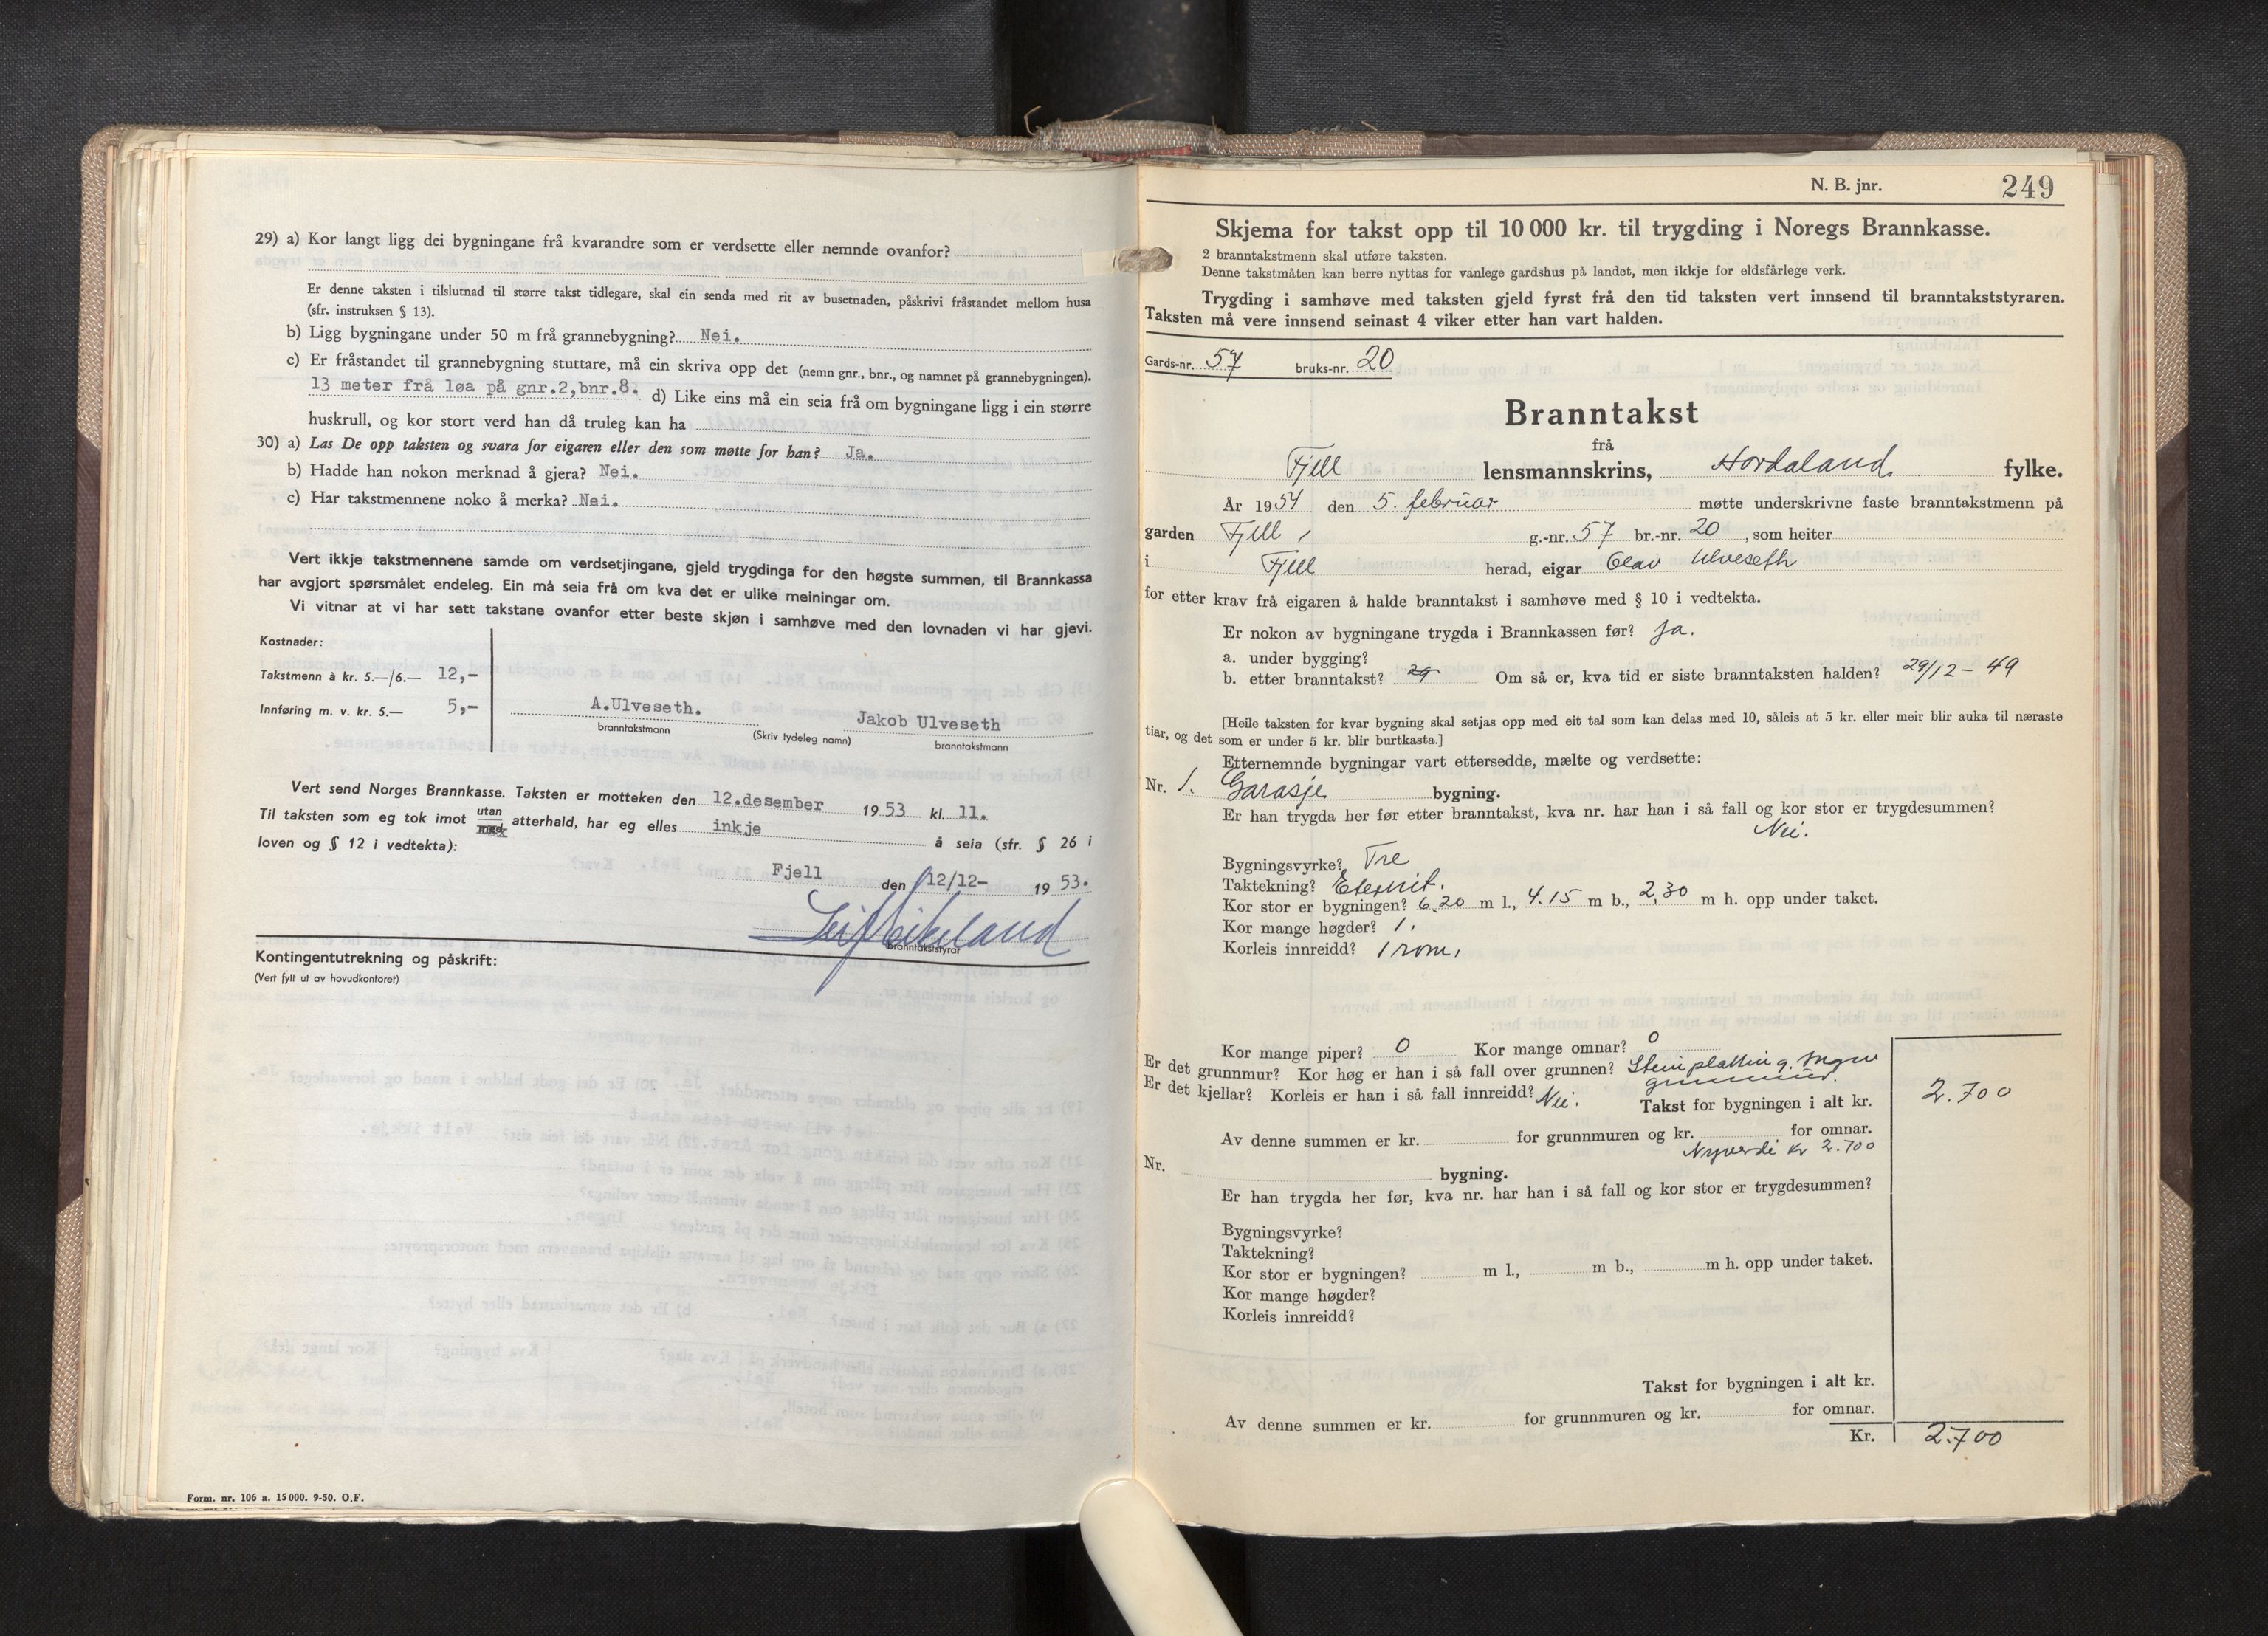 29) a) Kor langt ligg dei bygningane frå kvarandre som er verdsette eller nemnde ovanfor?
Er denne taksten i tilslutnad til større takst tidlegare, skal ein senda med rit av busetnaden, påskrivi fråstandet mellom husa
(sfr. instruksen § 13).
b) Ligg bygningane under 50 m frå grannebygning? Nei.
c) Er fråstandet til grannebygning stuttare, må ein skriva opp det (nemn gnr., bnr., og namnet på grannebygningen).
13 meter frå løa på gnr.2,bnr.8. d) Like eins må ein seia frå om bygningane ligg i ein større
huskrull, og kor stort verd han då truleg kan ha
30) a) Las De opp taksten og svara for eigaren eller den som møtte for han? Ja.
b) Hadde han nokon merknad å gjera? Nei.
c) Har takstmennene noko å merka? Nei.
Vert ikkje takstmennene samde om verdsetjingane, gjeld trygdinga for den høgste summen, til Brannkassa
har avgjort spørsmålet endeleg. Ein må seia frå om kva det er ulike meiningar om.
Vi vitnar at vi har sett takstane ovanfor etter beste skjøn i samhøve med den lovnaden vi har gjevi.
Kostnader:
Takstmenn à kr. 5.—/6.— 12,-
Innføring m. v. kr. 5.— 5,-
A.Ulveseth.
branntakstmann
(Skriv tydeleg namn)
Jakob Ulveseth
branntakstmann
Vert send Norges Brannkasse. Taksten er motteken den 12.desember 1953 kl. 11.
Til taksten som eg tok imot utan/med atterhald, har eg elles inkje å seia (sfr. § 26 i
loven og § 12 i vedtekta):
Fjell den 12/12- 1953.
branntakststyrar
Kontingentutrekning og påskrift:
(Vert fylt ut av hovudkontoret)
Form. nr. 106 a. 15 000. 9-50. O.F.
N. B. jnr. 249
Skjema for takst opp til 10 000 kr. til trygding i Noregs Brannkasse.
2 branntakstmenn skal utføre taksten.
Denne takstmåten kan berre nyttas for vanlege gardshus på landet, men ikkje for eldsfårlege verk.
Trygding i samhøve med taksten gjeld fyrst frå den tid taksten vert innsend til branntakststyraren.
Taksten må vere innsend seinast 4 viker etter han vart halden.
Gards-nr. 57 bruks-nr. 20
Branntakst
frå
Fjell lensmannskrins, Hordaland fylke.
År 1954 den 5. februar møtte underskrivne faste branntakstmenn på
garden Fjell, g.-nr. 57 br.-nr. 20, som heiter
i Fjell herad, eigar Olav Ulveseth
for etter krav frå eigaren å halde branntakst i samhøve med § 10 i vedtekta.
Er nokon av bygningane trygda i Brannkassen før? Ja.
a. under bygging?
b. etter branntakst? 29 Om så er, kva tid er siste branntaksten halden? 29/12 - 49
[Heile taksten for kvar bygning skal setjas opp med eit tal som kan delas med 10, såleis at 5 kr. eller meir blir auka til næraste
tiar, og det som er under 5 kr. blir burtkasta.]
Etternemnde bygningar vart ettersedde, mælte og verdsette:
Nr. 1. Garasje bygning.
Er han trygda her før etter branntakst, kva nr. har han i så fall og kor stor er trygdesummen?
Nei.
Bygningsvyrke? Tre
Taktekning? Eternit.
Kor stor er bygningen? 6.20 m l., 4.15 m b., 2,30 m h. opp under taket.
Kor mange høgder? 1.
Korleis innreidd? 1 rom,
Kor mange piper? 0 Kor mange omnar? 0
Er det grunnmur? Kor høg er han i så fall over grunnen? Steinplatting. Ingen
grunnmur.
Er det kjellar? Korleis er han i så fall innreidd? Nei. Takst for bygningen i alt kr. 2.700
Av denne summen er kr. for grunnmuren og kr. for omnar.
Nyverdi kr 2.700
Nr. bygning.
Er han trygda her før, kva nr. har han i så fall og kor stor er trygdesummen?
Bygningsvyrke?
Taktekning?
Kor stor er bygningen? m l., m b., m h. opp under taket.
Kor mange høgder?
Korleis innreidd?
Takst for bygningen i alt kr.
Av denne summen er kr. for grunnmuren og kr. for omnar.
Kr. 2.700